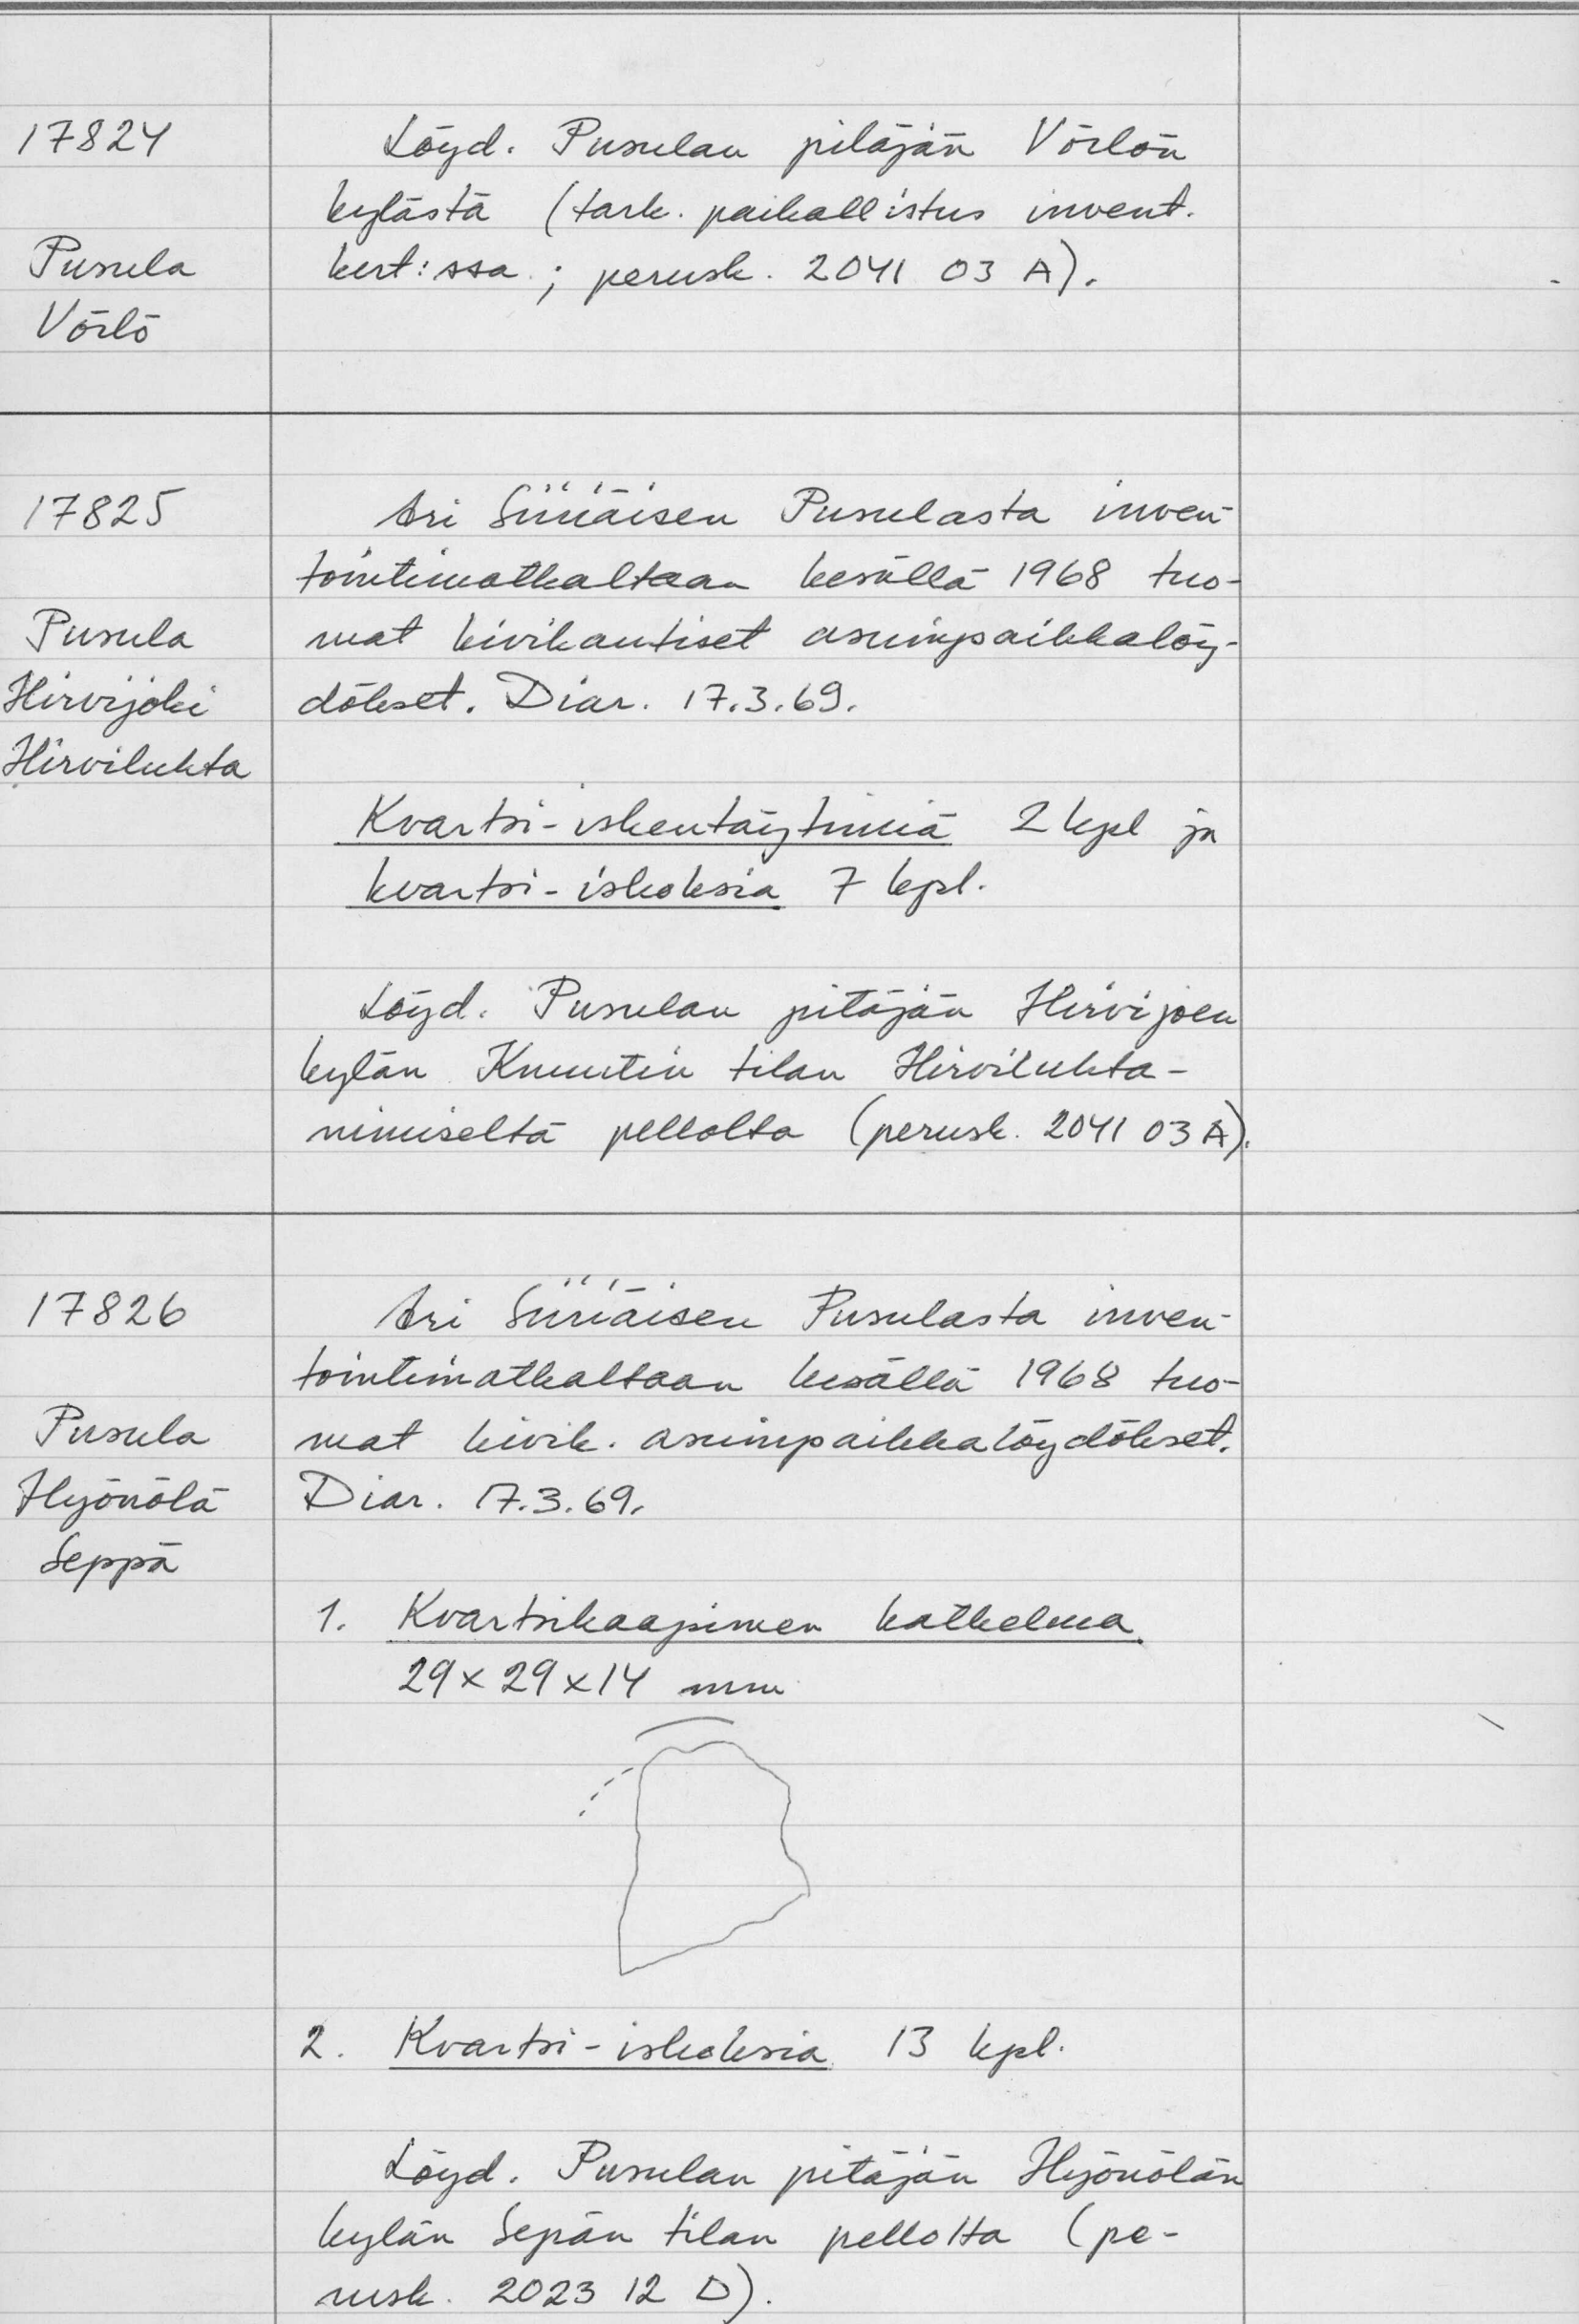 17824
Löyd. Pusulan pitäjän Võrlön
kylästä (tark. paikallistus invent.
kert:ssa ; perusk. 2041 03 A).
Pusula
Vörlö
17825
Ari Siiriäisen Pusulasta inven-
tointimatkaltaan kesällä 1968 tuo-
mat kivikautiset asuinpaikkalöy-
dökset. Diar. 17.3.69.
Pusula
Hirvijoki
Hirviluhta
Kvartsi-iskentäytimiä 2 kpl ja
kvartsi-iskoksia 7 kpl.
Löyd. Pusulan pitäjän Hirvijoen
kylän Knuutin tilan Hirviluhta-
nimiseltä pellolta (perusk. 2041 03 A).
17826
Ari Siiriäisen Pusulasta inven-
tointimatkaltaan kesällä 1968 tuo-
mat kivik. asuinpaikkalöydökset.
Diar. 17.3.69.
Pusula
Hyönölä
Seppä
1. Kvartsikaapimen katkelma
29 x 29 x 14 mm
2. Kvartsi-iskoksia 13 kpl.
Löyd. Pusulan pitäjän Hyönölän
kylän Sepän tilan pellolta (pe-
rusk. 2023 12 D).